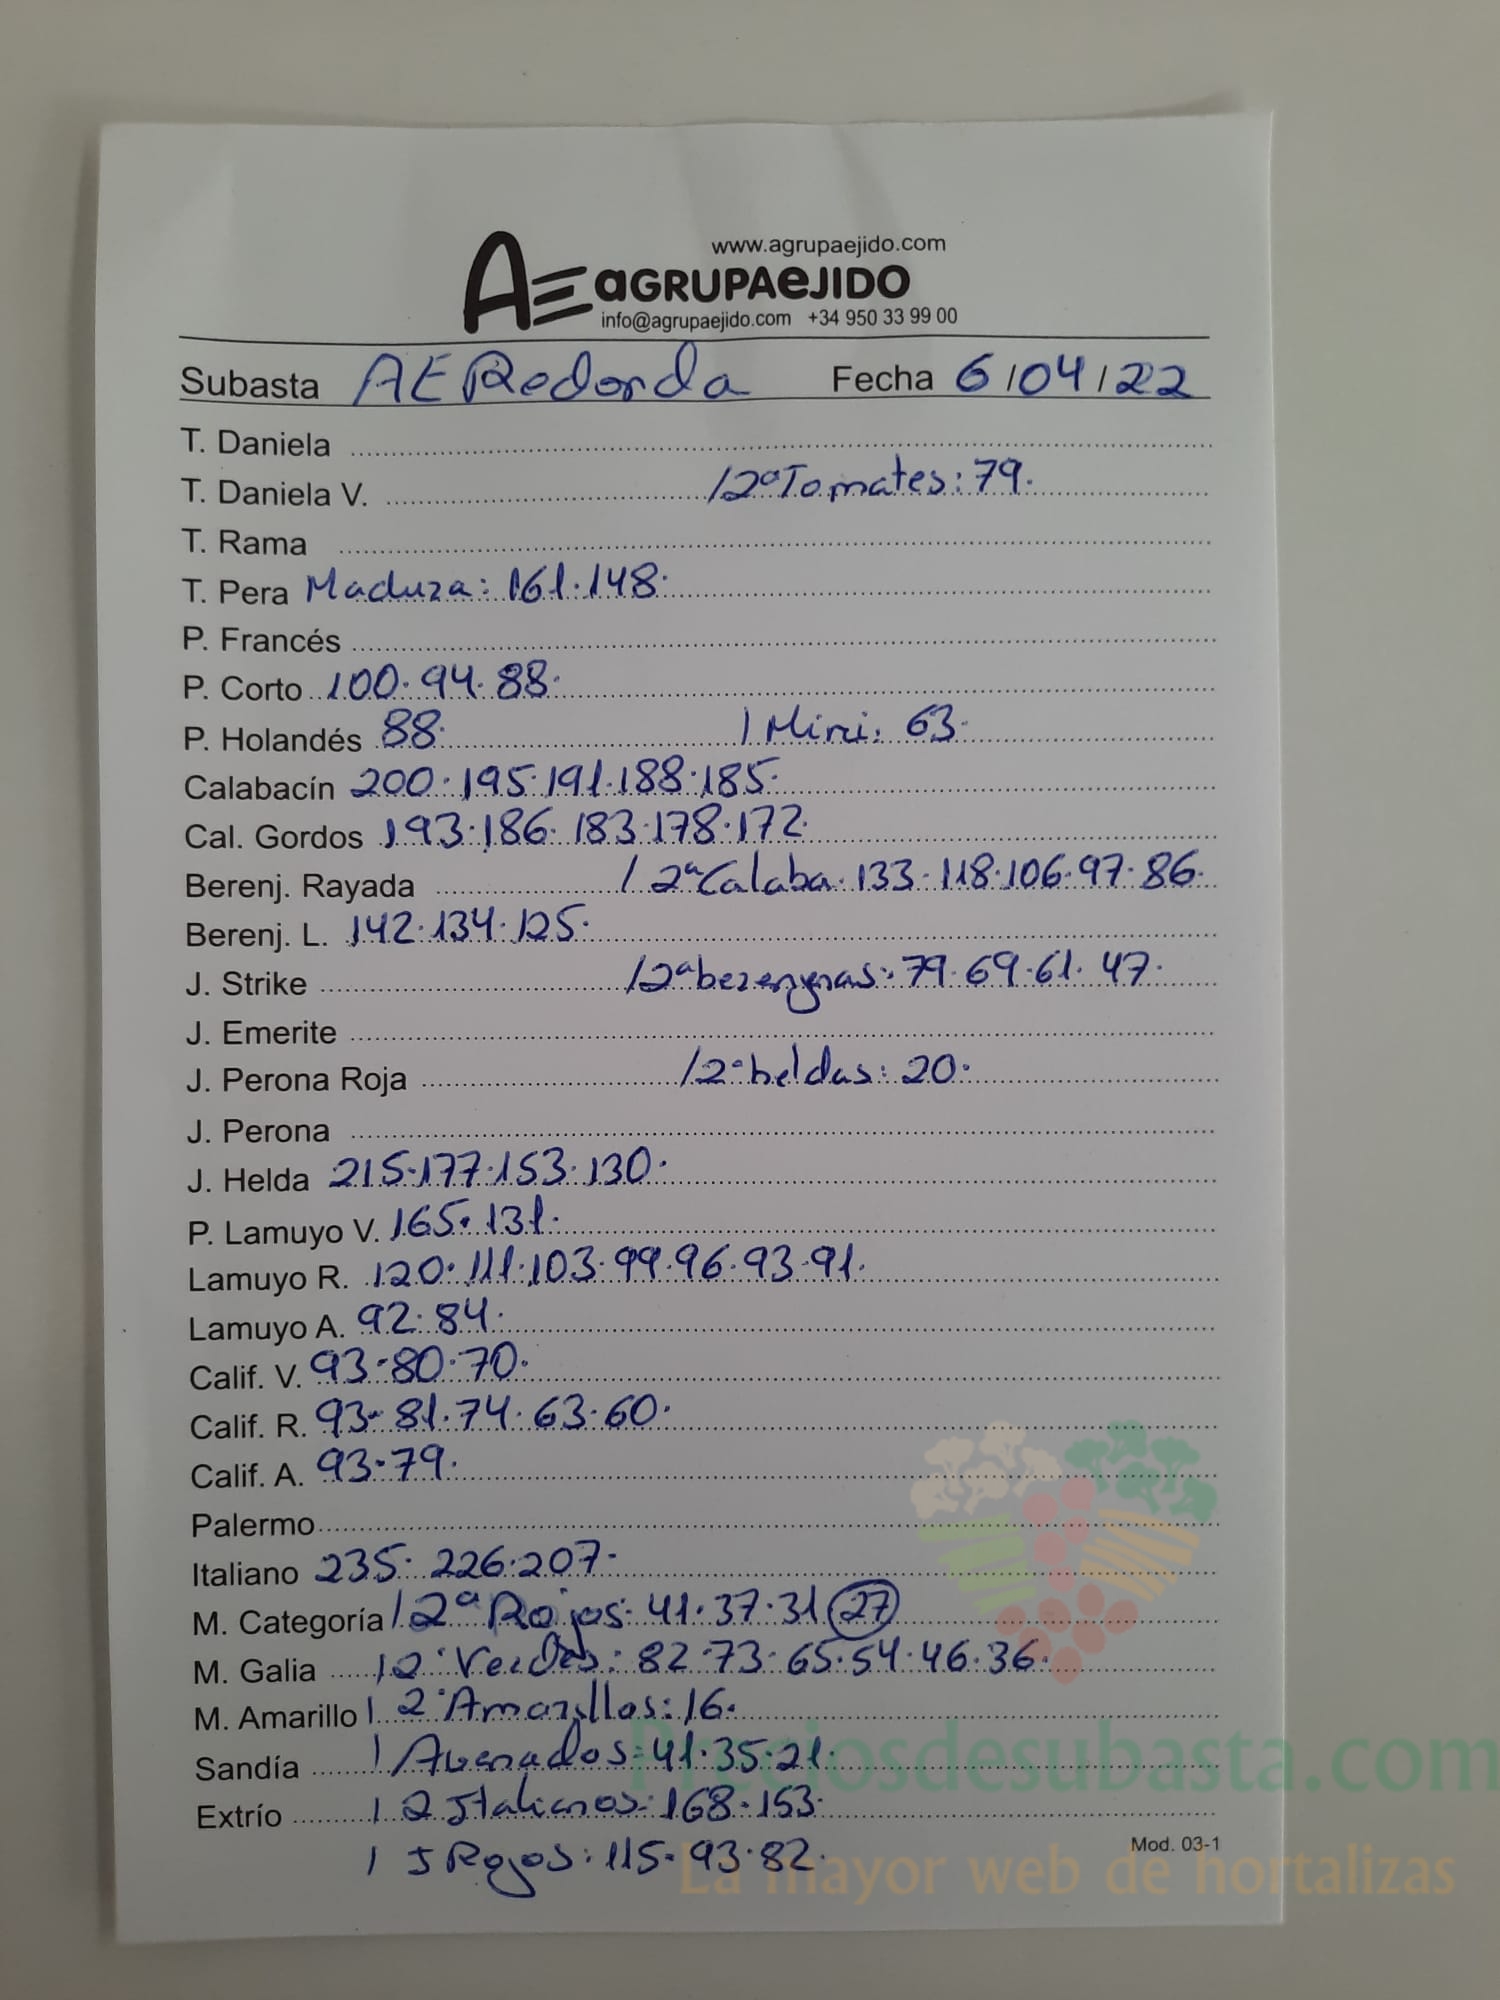 www.agrupaejido.com
AE aGRUPAeJIDO
info@agrupaejido.com +34 950 33 99 00
Subasta AE Redonda Fecha 6/04/22
T. Daniela
T. Daniela V. /2ª Tomates: 79.
T. Rama
T. Pera Madura: 161. 148.
P. Francés
P. Corto 100. 94. 88.
P. Holandés 88. / Mini: 63.
Calabacín 200. 195. 191. 188. 185.
Cal. Gordos 193. 186. 183. 178. 172.
Berenj. Rayada / 2ª Calaba. 133. 118. 106. 97. 86.
Berenj. L. 142. 134. 125.
J. Strike /2ª berengenas: 79. 69. 61. 47.
J. Emerite
J. Perona Roja /2ª heldas: 20.
J. Perona
J. Helda 215. 177. 153. 130.
P. Lamuyo V. 165. 131.
Lamuyo R. 120. 111. 103. 99. 96. 93. 91.
Lamuyo A. 92. 84.
Calif. V. 93. 80. 70.
Calif. R. 93. 81. 74. 63. 60.
Calif. A. 93. 79.
Palermo
Italiano 235. 226. 207.
M. Categoría / 2ª Rojos: 41. 37. 31 27
M. Galia / 2ª Verdes: 82. 73. 65. 54. 46. 36.
M. Amarillo / 2ª Amarillos: 16.
Sandía / Asurados: 41. 35. 21.
Extrío / 2 Italianos: 168. 153.
/ J Rojos: 115. 93. 82.
Mod. 03-1
Preciosdesubasta.com
La mayor web de hortalizas